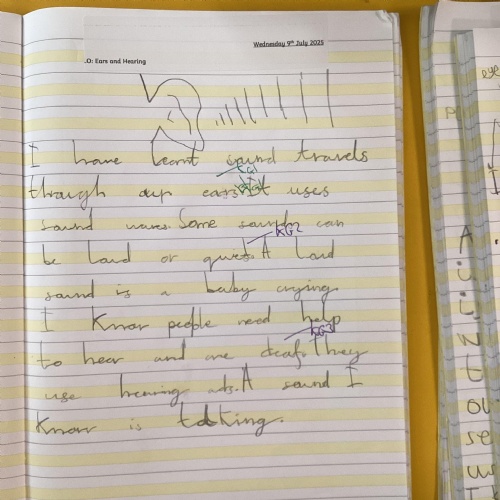 Wednesday 9th July 2025
.O: Ears and Hearing
I have learnt sound travels
through our ears. It uses
sound waves. Some sounds can
be loud or quiet. A loud
KG2
sound is a baby crying.
I know people need help
KG3
to hear and are deaf. They
use hearing ads. A sound I
know is talking.
eye
P
A
U
N
t
ou
se
us